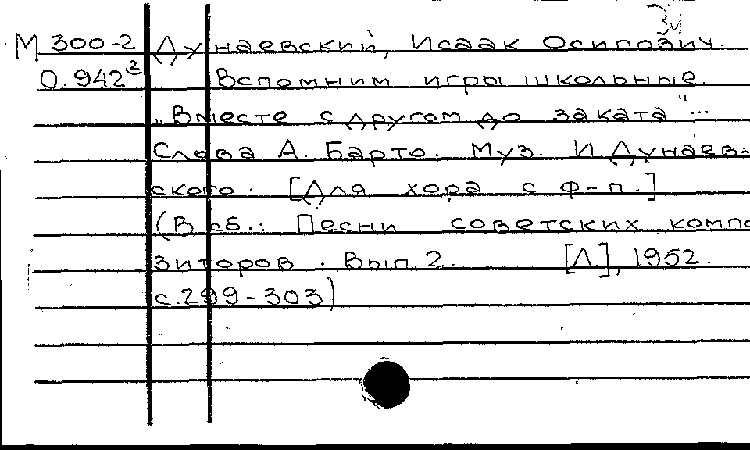 М 300-2 Дунаевский, Исаак Осипович.
0.942² Вспомним игры школьные.
„Вместе с другом до заката"...
Слова А. Барто. Муз. И. Дунаев-
ского. [Для хора с ф-п.]
(В сб.: Песни советских компо-
зиторов. Вып. 2. [Л], 1952.
с. 299-303)